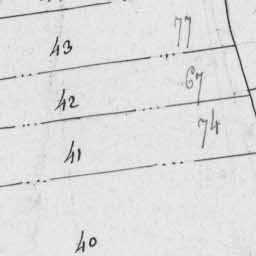 43 77
42 67
41 74
40